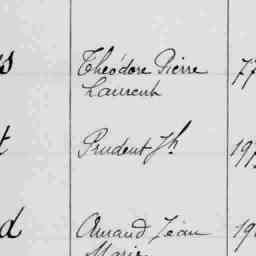 s Théodore Pierre 77
Laurent
t Prudent Jh 197
d Amand Jean 19
Marie